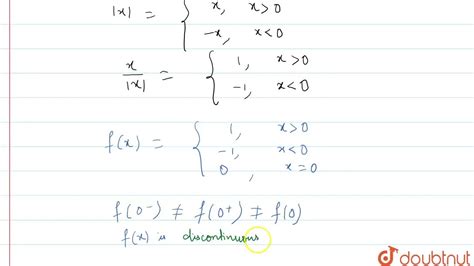 |x| = { x, x>0
-x, x<0
x/|x| = { 1, x>0
-1, x<0
f(x) = { 1, x>0
-1, x<0
0, x=0
f(0-) ≠ f(0+) ≠ f(0)
f(x) is discontinuous
doubtnut